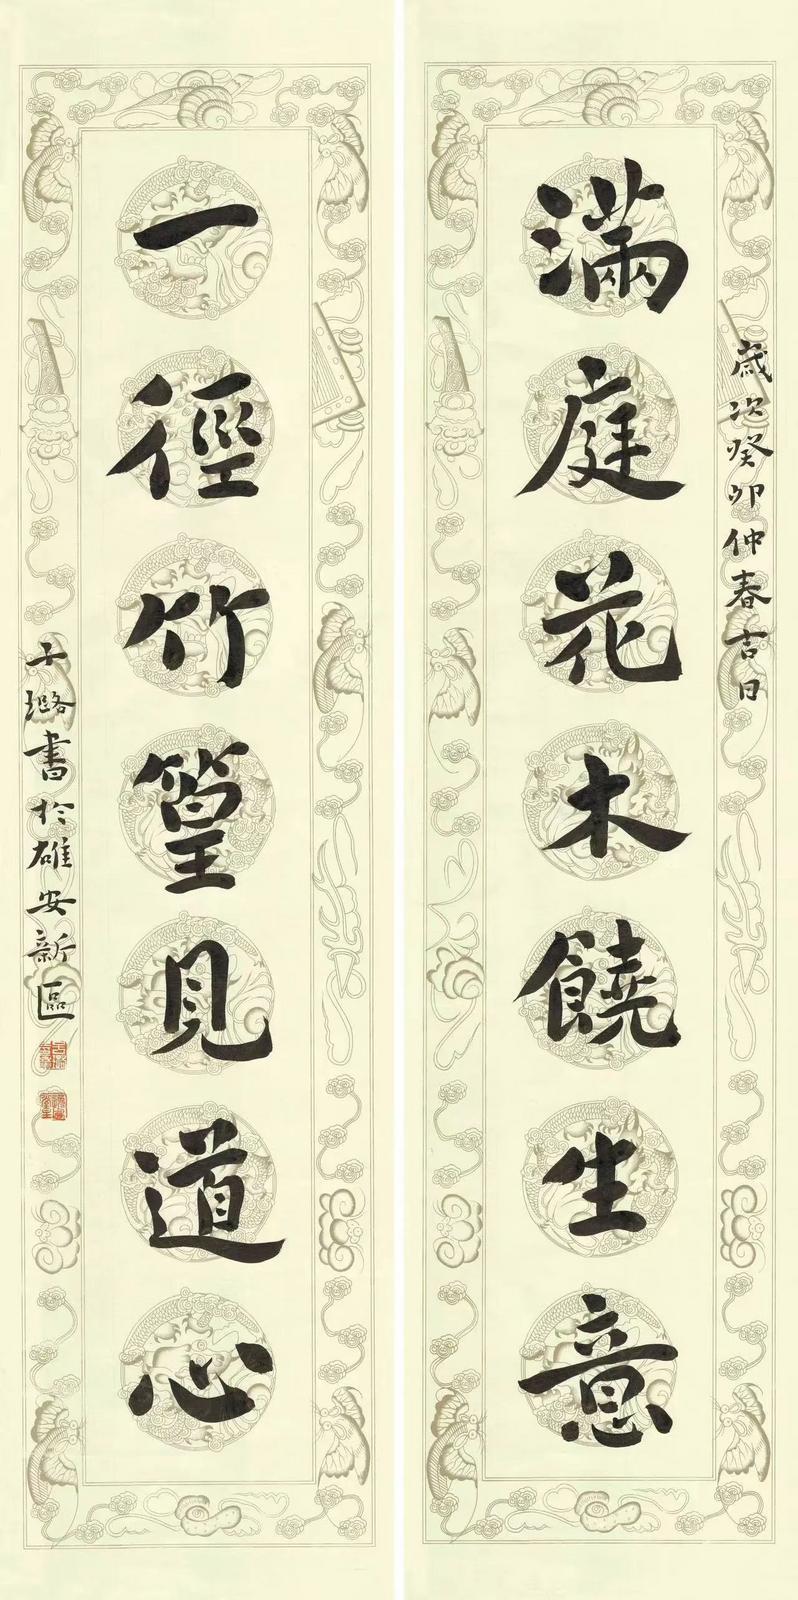 歲次癸卯仲春吉日
滿庭花木饒生意
一徑竹篁見道心
子璐書於雄安新區